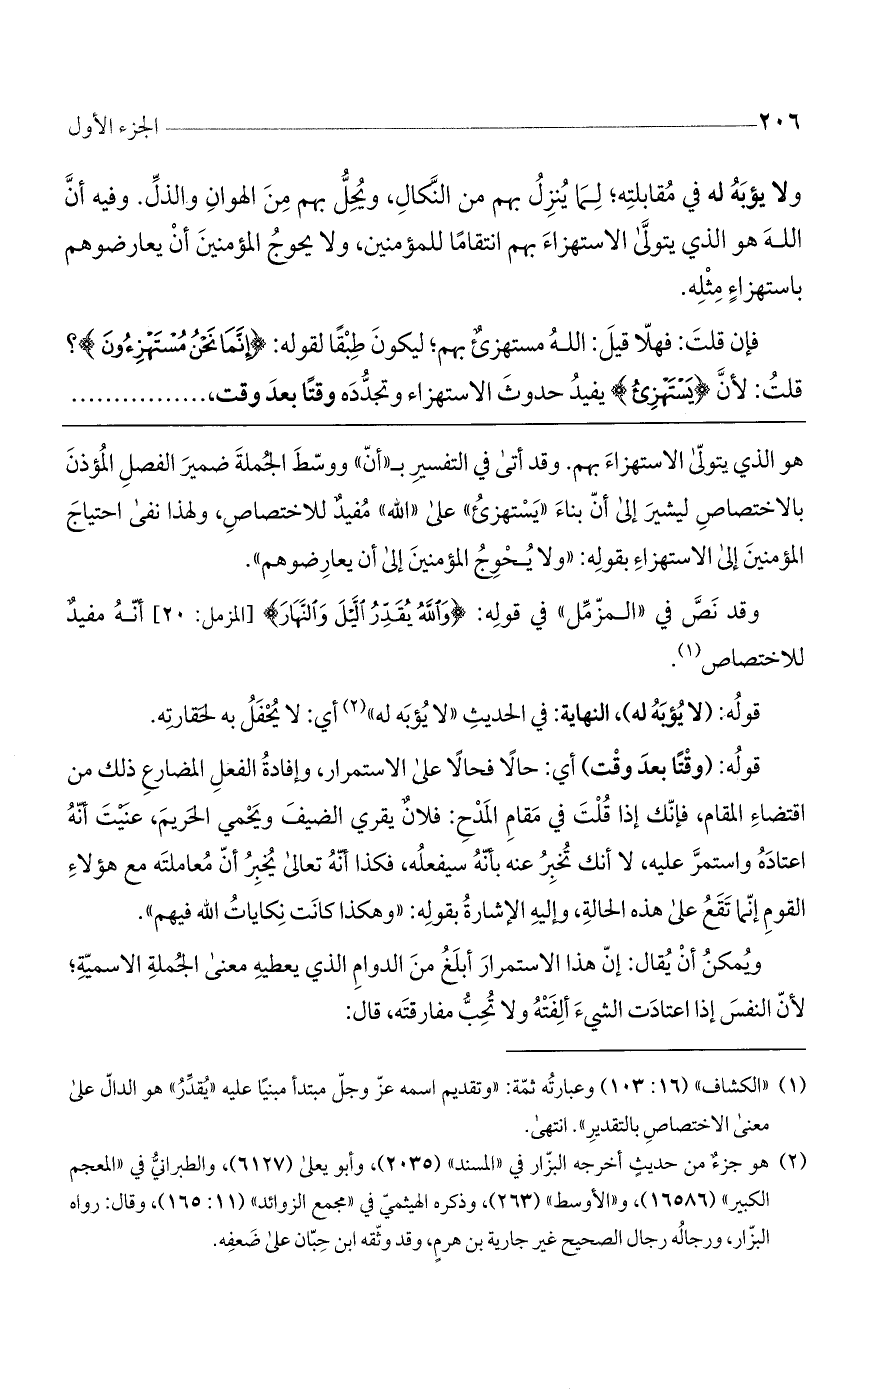 ٢٠٦ الجزء الأول
ولا يؤبَهُ له في مُقابلتِه؛ لِمَا يُنزِلُ بهم من النَّكالِ، ويُحِلُّ بهم مِنَ الهوانِ والذلِّ. وفيه أنَّ
اللهَ هو الذي يتولَّى الاستهزاءَ بهم انتقامًا للمؤمنين، ولا يحوجُ المؤمنينَ أنْ يعارضوهم
باستهزاءٍ مِثْلِه.
فإن قلتَ: فهلّا قيلَ: اللهُ مستهزئٌ بهم؛ ليكونَ طِبْقًا لقوله: ﴿إِنَّمَا نَحْنُ مُسْتَهْزِءُونَ﴾؟
قلتُ: لأنَّ ﴿يَسْتَهْزِئُ﴾ يفيدُ حدوثَ الاستهزاء وتجدُّدَه وقتًا بعدَ وقت،................
هو الذي يتولّى الاستهزاءَ بهم. وقد أتى في التفسيرِ بـ«أنّ» ووسّطَ الجُملةَ ضميرَ الفصلِ المُؤذنَ
بالاختصاصِ ليشيرَ إلى أنّ بناءَ «يَسْتهزئُ» على «الله» مُفيدٌ للاختصاصِ، ولهذا نفى احتياجَ
المؤمنينَ إلى الاستهزاءِ بقولِه: «ولا يُحْوِجُ المؤمنينَ إلى أن يعارِضوهم».
وقد نَصَّ في «المزّمِّل» في قولِه: ﴿وَٱللَّهُ يُقَدِّرُ ٱلَّيْلَ وَٱلنَّهَارَ﴾ [المزمل: ٢٠] أنّهُ مفيدٌ
للاختصاص(١).
قولُه: (لا يُؤبَهُ له)، النهاية: في الحديثِ «لا يُؤبَه له»(٢) أي: لا يُحْفَلُ به لحَقارتِه.
قولُه: (وقْتًا بعدَ وقْت) أي: حالًا فحالًا على الاستمرار، وإفادةُ الفعلِ المضارعِ ذلك من
اقتضاءِ المقام، فإنّك إذا قُلْتَ في مَقامِ المَدْحِ: فلانٌ يقري الضيفَ ويَحْمي الحَريمَ، عنَيْتَ أنّهُ
اعتادَهُ واستمرَّ عليه، لا أنك تُخبِرُ عنه بأنّهُ سيفعلُه، فكذا أنّهُ تعالى يُخبِرُ أنّ مُعاملتَه مع هؤلاءِ
القومِ إنّما تَقَعُ على هذه الحالةِ، وإليهِ الإشارةُ بقولِه: «وهكذا كانَت نِكاياتُ الله فيهم».
ويُمكنُ أنْ يُقال: إنّ هذا الاستمرارَ أبلَغُ منَ الدوامِ الذي يعطيهِ معنى الجُملةِ الاسميّةِ؛
لأنّ النفسَ إذا اعتادَت الشيءَ ألِفَتْهُ ولا تُحِبُّ مفارقتَه، قال:
(١) «الكشاف» (١٦: ١٠٣) وعبارتُه ثمّة: «وتقديم اسمه عزّ وجلّ مبتدأ مبنيًا عليه «يُقدِّرُ» هو الدالّ على
معنى الاختصاصِ بالتقديرِ». انتهى.
(٢) هو جزءٌ من حديثٍ أخرجه البزّار في «المسند» (٢٠٣٥)، وأبو يعلى (٦١٢٧)، والطبرانيُّ في «المعجم
الكبير» (١٦٥٨٦)، و«الأوسط» (٢٦٣)، وذكره الهيثميّ في «مجمع الزوائد» (١١: ١٦٥)، وقال: رواه
البزّار، ورجالُه رجال الصحيح غير جارية بن هرمٍ، وقد وثّقه ابن حِبّان على ضَعفِه.